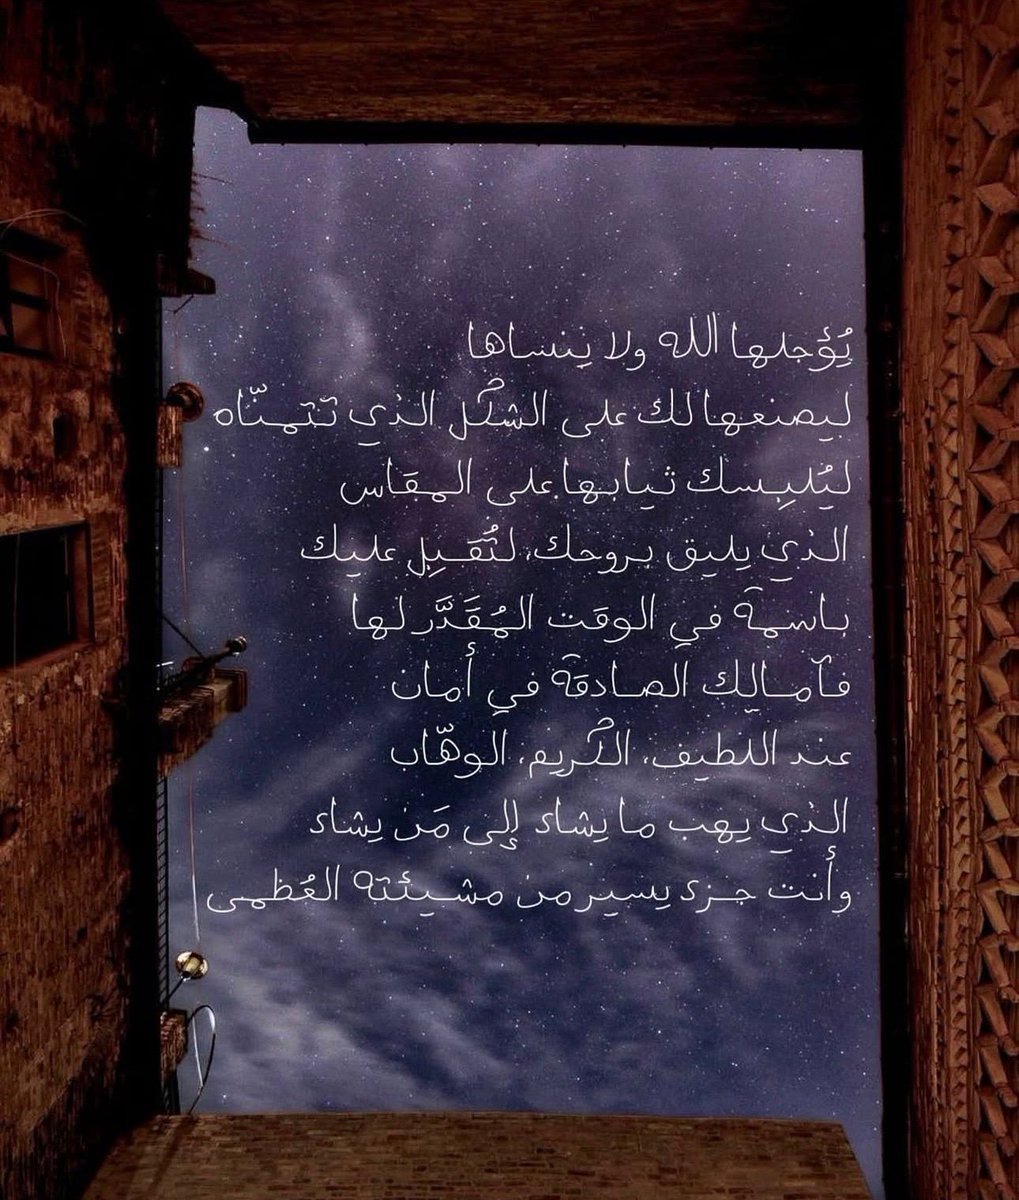 يُؤجلها الله ولا يَنساها
ليصنعها لك على الشكل الذي تتمنّاه
ليُلبِسك ثيابها على المقاس
الذي يليق بروحك، لتُقبِل عليك
باسمة في الوقت المُقَدَّر لها
فآمالك الصادقة في أمان
عند اللطيف، الكريم، الوهّاب
الذي يهب ما يشاء إلى مَن يشاء
وأنت جزء يسير من مشيئته العُظمى